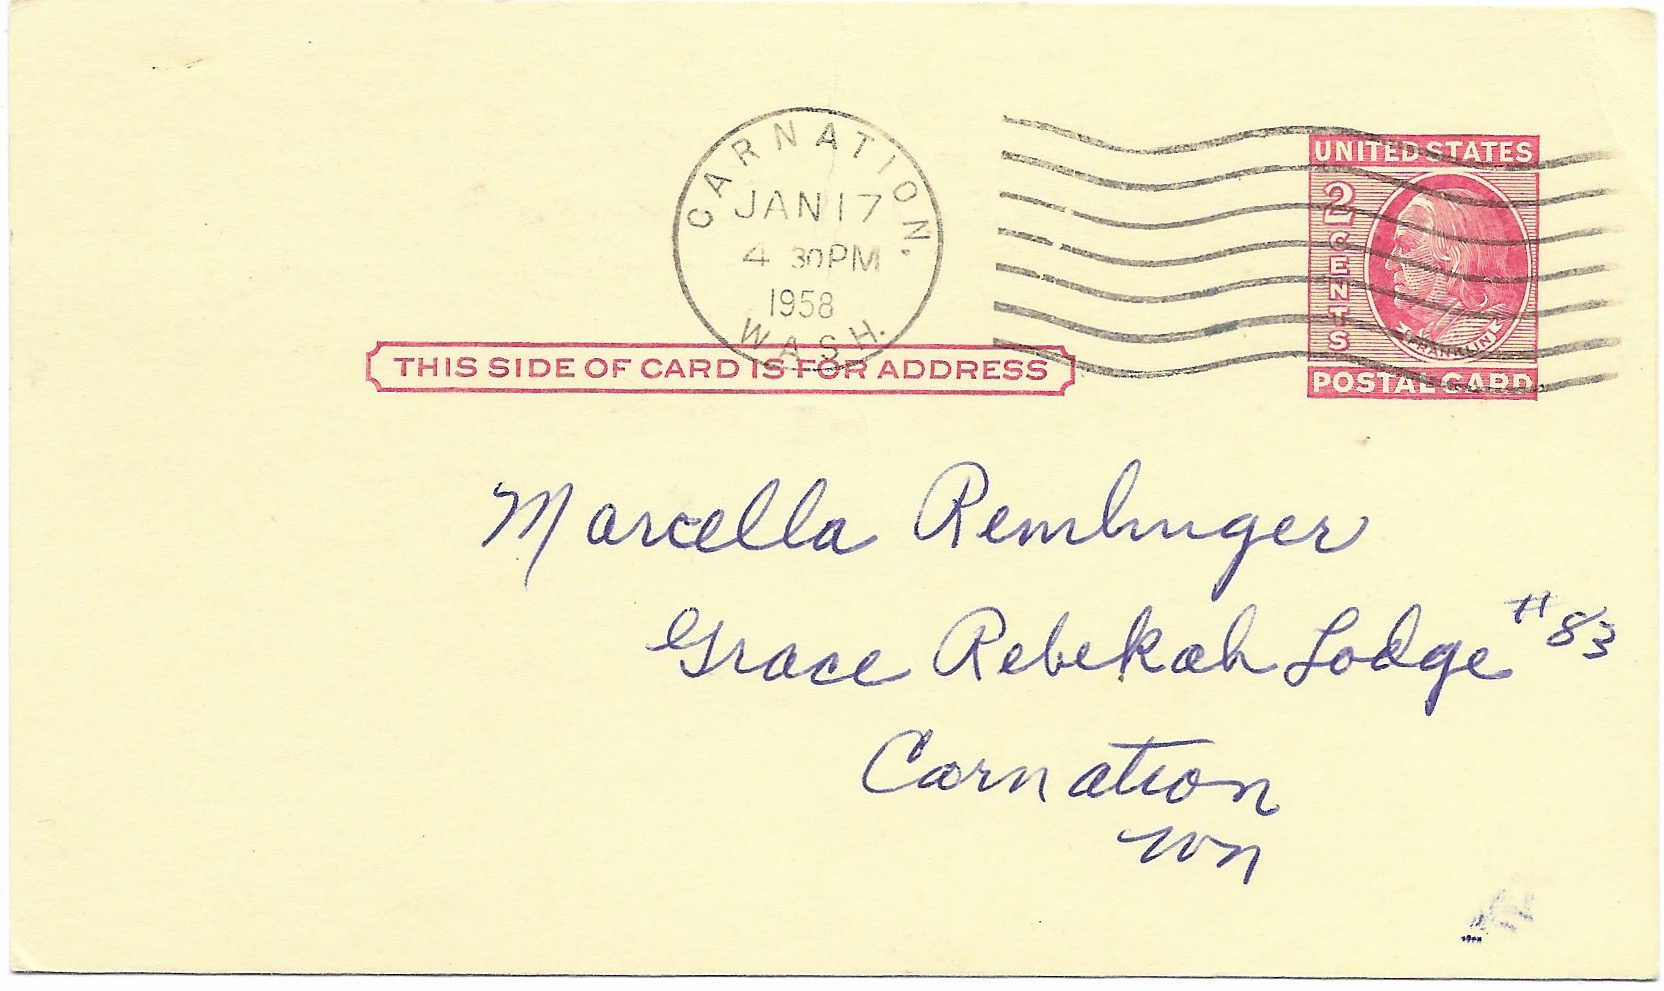 CARNATION, WASH.
JAN 17
4 30 PM
1958
UNITED STATES
2 CENTS
FRANKLIN
POSTAL CARD
THIS SIDE OF CARD IS FOR ADDRESS
Marcella Remlinger
Grace Rebekah Lodge #83
Carnation
Wn